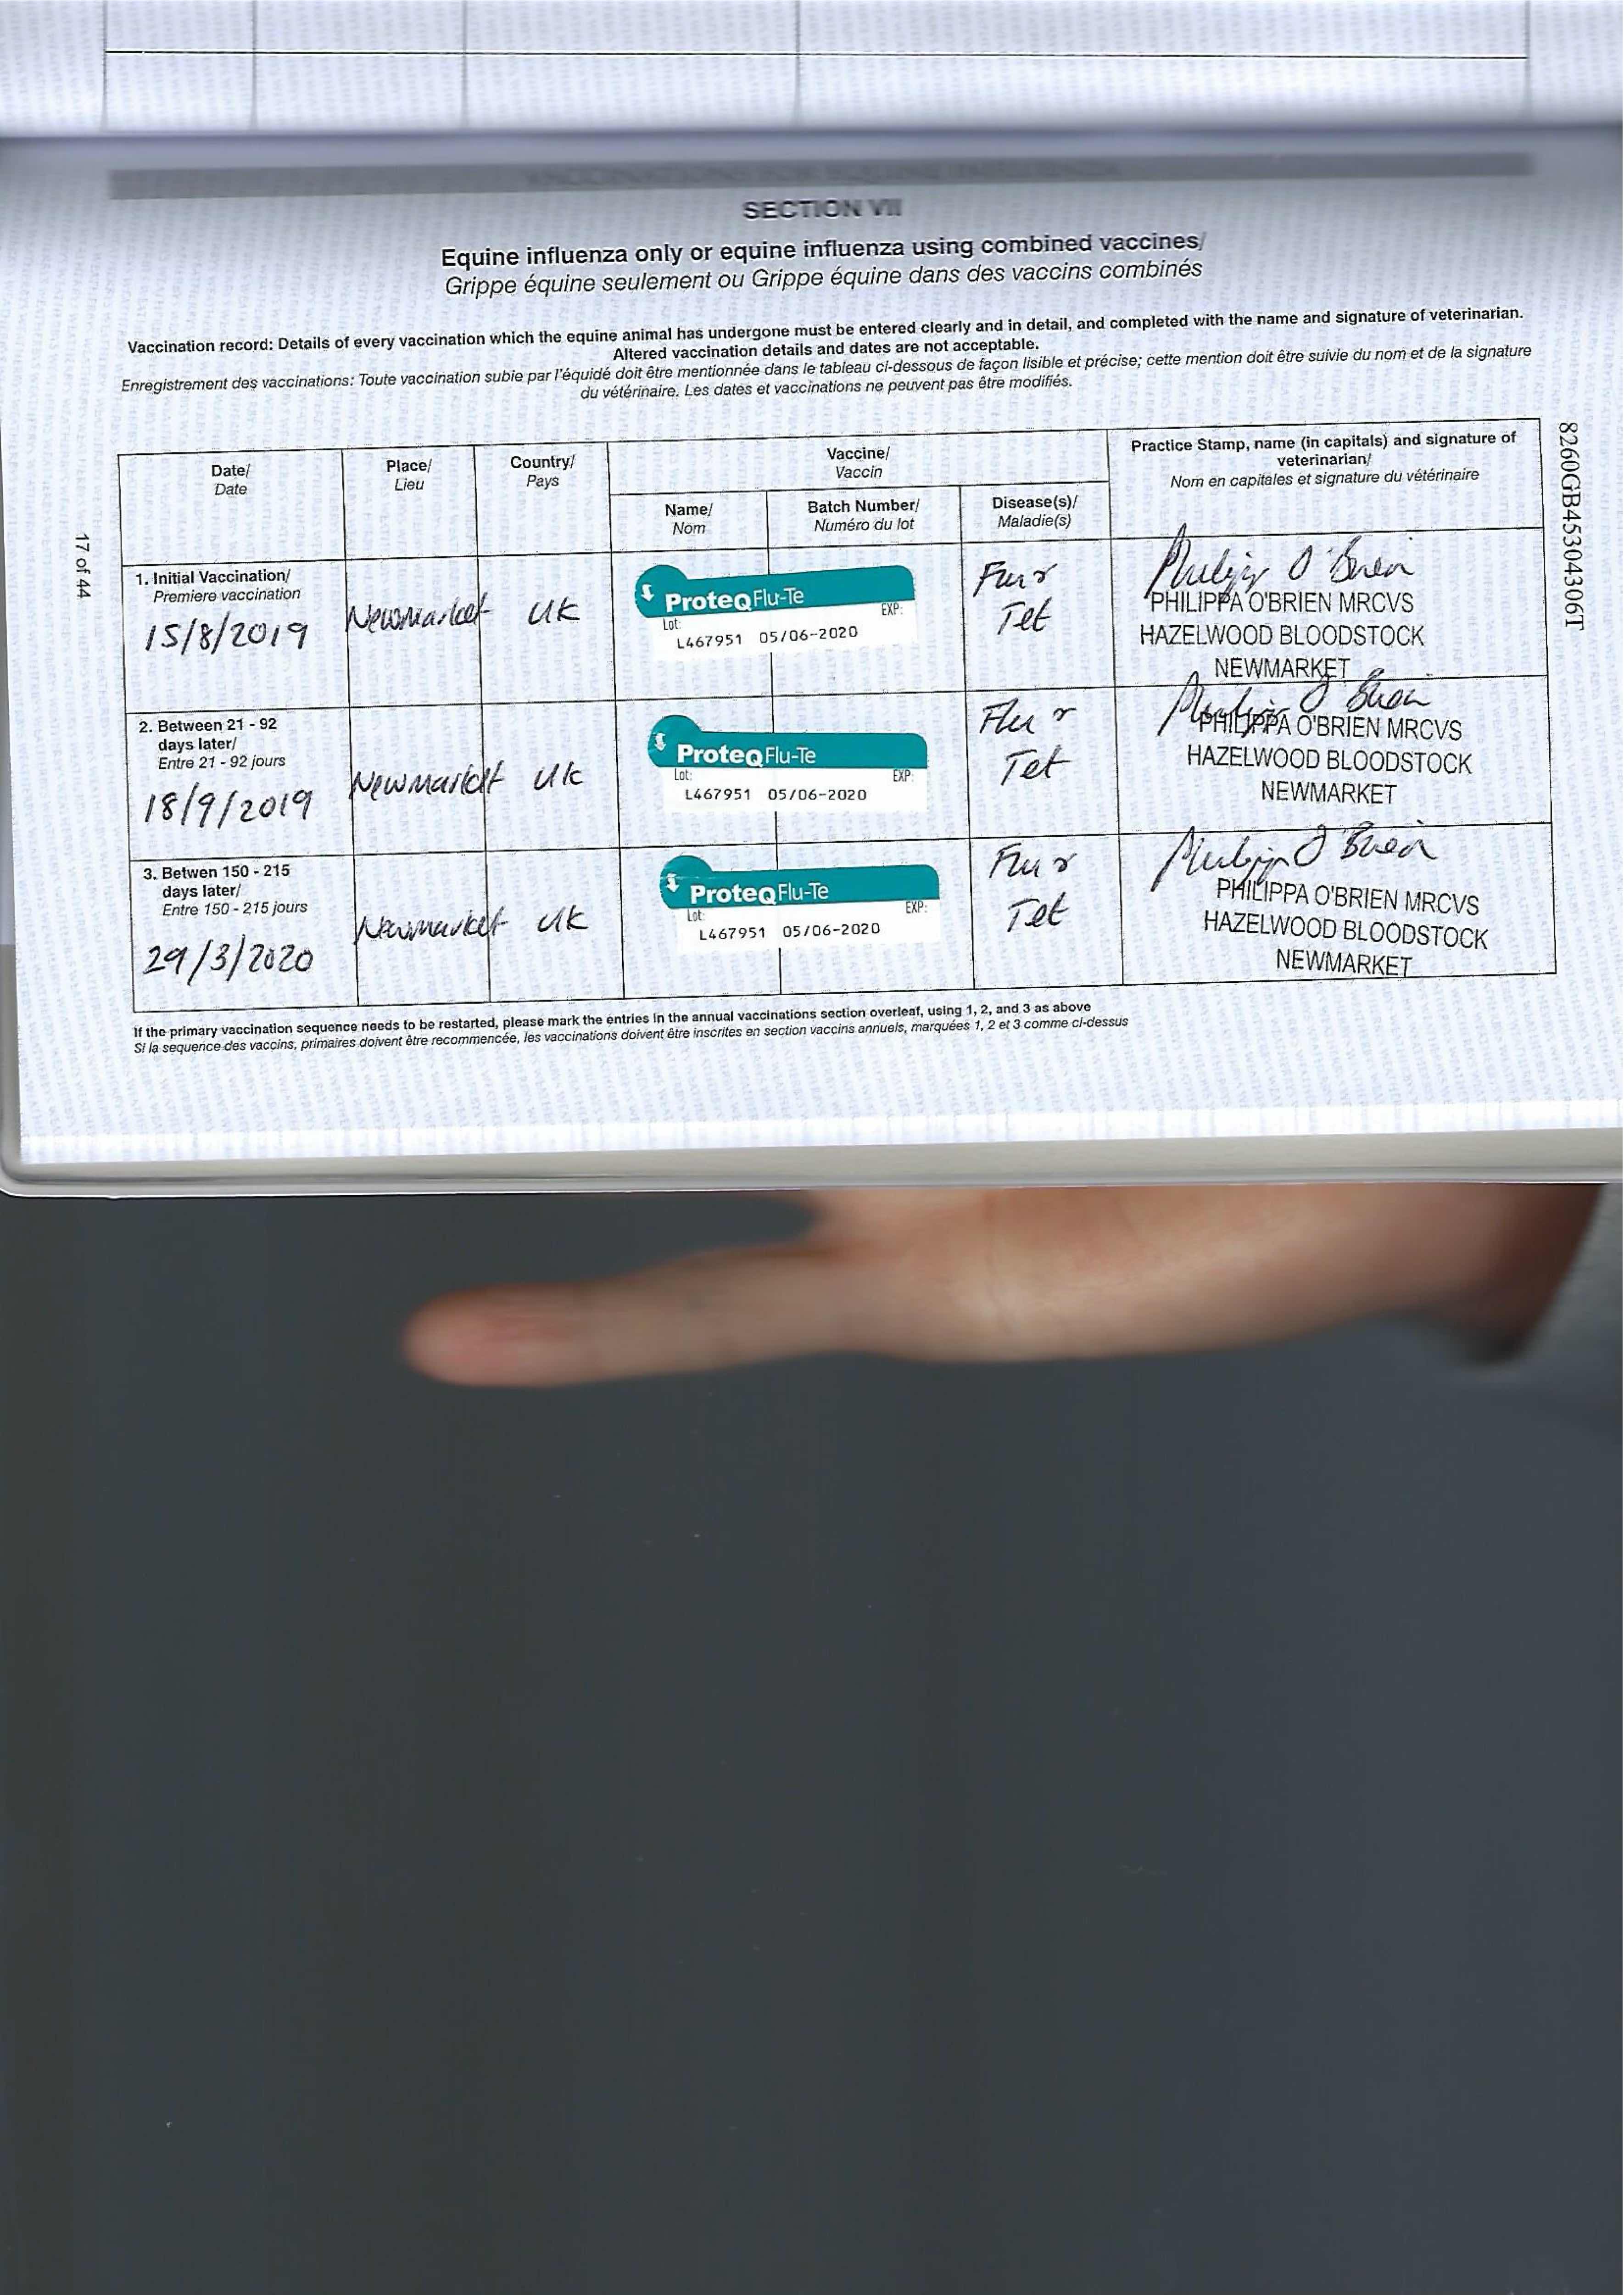 SECTION VII
Equine influenza only or equine influenza using combined vaccines/
Grippe équine seulement ou Grippe équine dans des vaccins combinés
Vaccination record: Details of every vaccination which the equine animal has undergone must be entered clearly and in detail, and completed with the name and signature of veterinarian.
Altered vaccination details and dates are not acceptable.
Enregistrement des vaccinations: Toute vaccination subie par l'équidé doit être mentionnée dans le tableau ci-dessous de façon lisible et précise; cette mention doit être suivie du nom et de la signature
du vétérinaire. Les dates et vaccinations ne peuvent pas être modifiés.
8260GB45304306T
17 of 44
Date/
Date
Place/
Lieu
Country/
Pays
Vaccine/
Vaccin
Name/
Nom
Batch Number/
Numéro du lot
Disease(s)/
Maladie(s)
Practice Stamp, name (in capitals) and signature of
veterinarian/
Nom en capitales et signature du vétérinaire
1. Initial Vaccination/
Premiere vaccination
15/8/2019
Newmarket
UK
ProteqFlu-Te
Lot: EXP:
L467951 05/06-2020
Tet
Philippa O'Brien
PHILIPPA O'BRIEN MRCVS
HAZELWOOD BLOODSTOCK
NEWMARKET
2. Between 21 - 92
days later/
Entre 21 - 92 jours
18/9/2019
Newmarket
UK
ProteqFlu-Te
Lot: EXP:
L467951 05/06-2020
Flu
Tet
Philippa O'Brien
PHILIPPA O'BRIEN MRCVS
HAZELWOOD BLOODSTOCK
NEWMARKET
3. Betwen 150 - 215
days later/
Entre 150 - 215 jours
29/3/2020
Newmarket
UK
ProteqFlu-Te
Lot: EXP:
L467951 05/06-2020
Flu
Tet
Philippa O'Brien
PHILIPPA O'BRIEN MRCVS
HAZELWOOD BLOODSTOCK
NEWMARKET
If the primary vaccination sequence needs to be restarted, please mark the entries in the annual vaccinations section overleaf, using 1, 2, and 3 as above
Si la sequence des vaccins, primaires doivent être recommencée, les vaccinations doivent être inscrites en section vaccins annuels, marquées 1, 2 et 3 comme ci-dessus